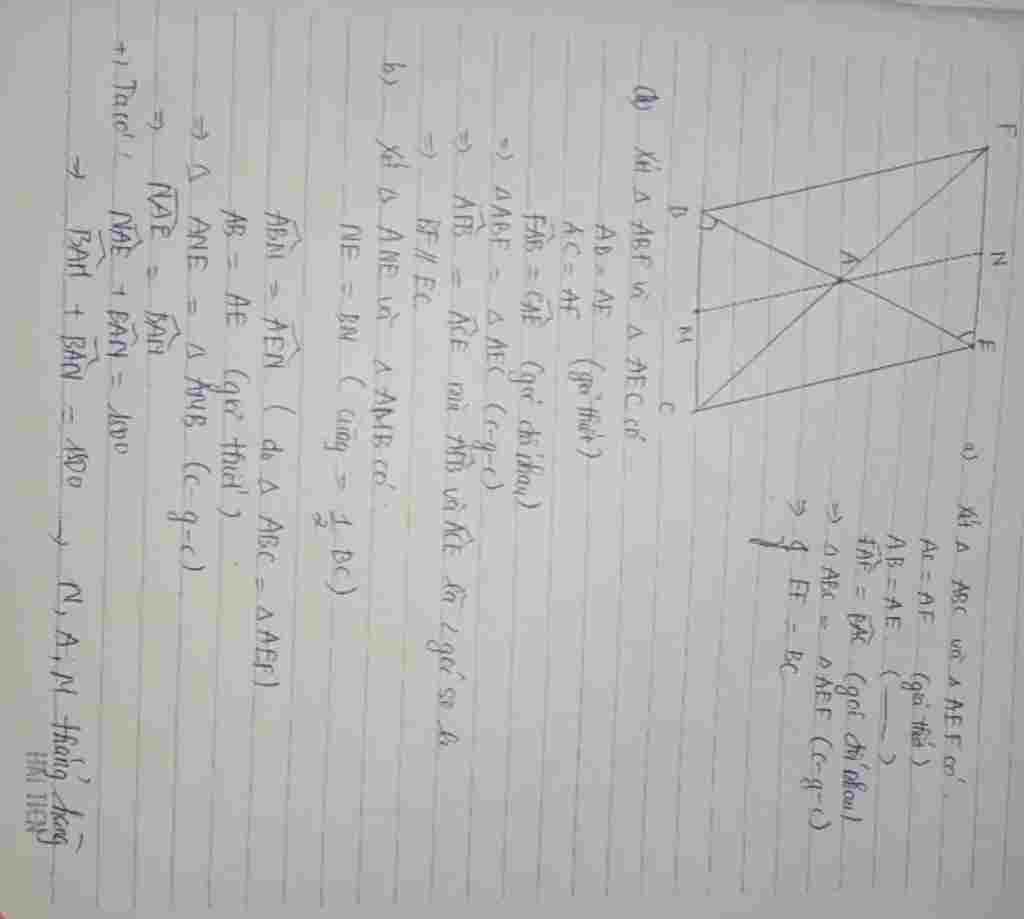 F
N
E
A
B
M
C
a) Xét Δ ABC và Δ AEF có
AC = AF (giả thiết)
AB = AE ( —— )
FAE = BAC (góc đối nhau)
=> Δ ABC = Δ AEF (c-g-c)
=> EF = BC
Xét Δ ABF và Δ AEC có
AB = AE
AC = AF (giả thiết)
FAB = CAE (góc đối nhau)
=> ΔABF = Δ AEC (c-g-c)
=> AFB = ACE mà AFB và ACE là 2 góc so le
=> BF // EC
b) Xét Δ ANE và Δ AMB có
NE = BM ( cùng = 1/2 BC)
ABM = AEN ( do Δ ABC = Δ AEF)
AB = AE (giả thiết)
=> Δ ANE = Δ AMB (c-g-c)
=> NAE = BAM
+) Ta có: NAE + BAN = 180
=> BAM + BAN = 180 → N, A, M thẳng hàng
HẢI TIẾN